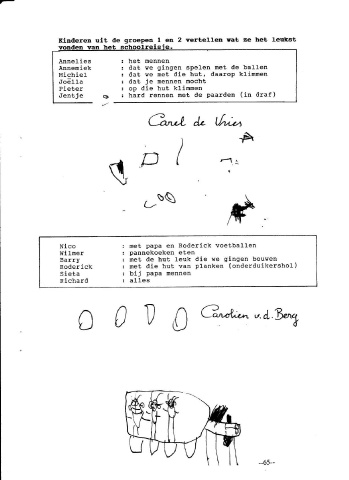 Kinderen uit de groepen 1 en 2 vertellen wat ze het leukst
vonden van het schoolreisje.
Annelies : het mennen
Annemiek : dat we gingen spelen met de ballen
Michiel : dat we met die hut, daarop klimmen
Joëlla : dat je mennen mocht
Pieter : op die hut klimmen
Jentje : hard rennen met de paarden (in draf)
Carel de Vries
Nico : met papa en Roderick voetballen
Wilmer : pannekoeken eten
Barry : met de hut leuk die we gingen bouwen
Roderick : met die hut van planken (onderduikershol)
Sieta : bij papa mennen
Richard : alles
Carolien v.d. Berg
--65--